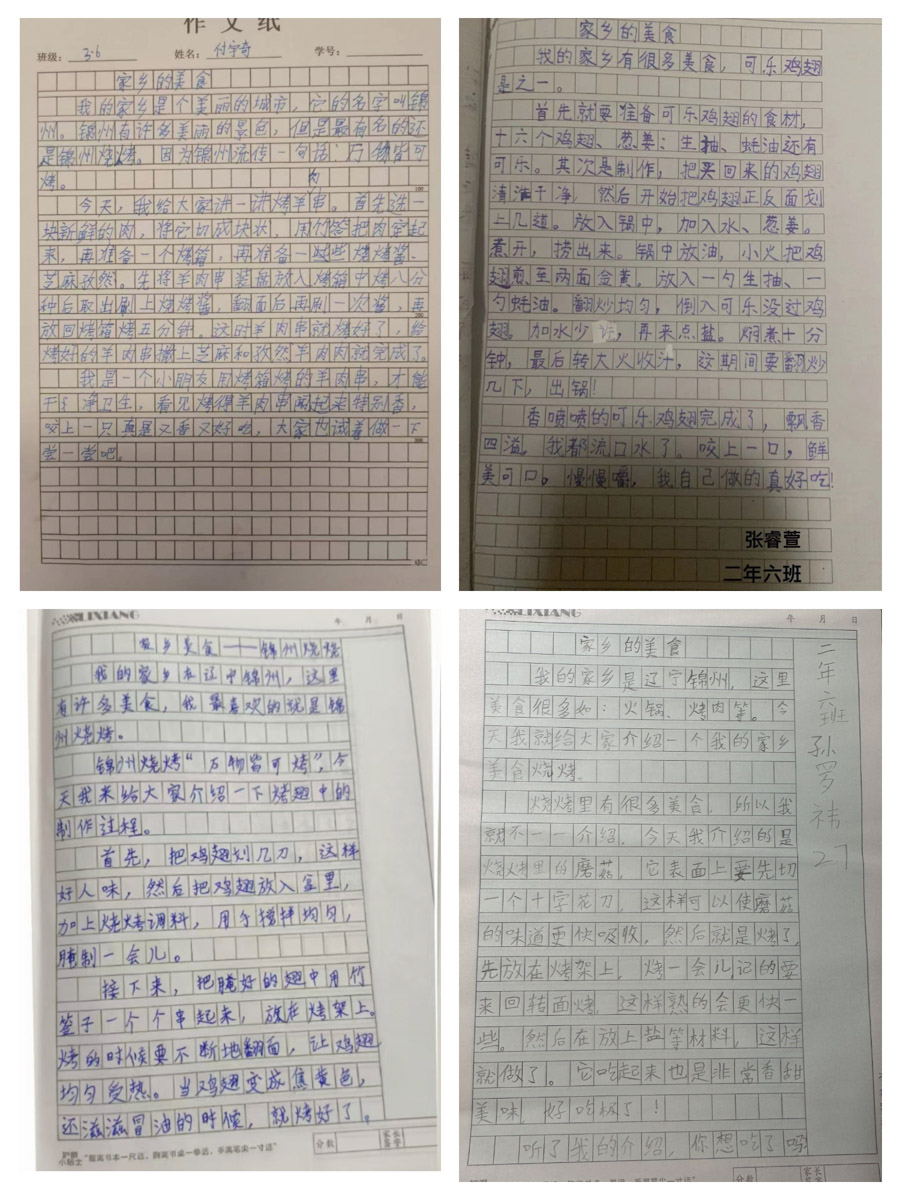 作文纸
班级：3.6 姓名：付宇奇 学号：
家乡的美食
我的家乡是个美丽的城市，它的名字叫锦
州。锦州有许多美丽的景色，但是最有名的还
是锦州烧烤。因为锦州流传一句话：万物皆可
烤。
今天，我给大家讲一讲烤羊串。首先选一
块新鲜的肉，将它切成块状，用竹签把肉穿起
来，再准备一个烤箱，再准备一些烧烤酱、
芝麻孜然。先将羊肉串装盘放入烤箱中烤八分
种后取出刷上烧烤酱，翻面后再刷一次酱，再
放回烤箱烤五分钟。这时羊肉串就烤好了，给
烤好的羊肉串撒上芝麻和孜然羊肉肉就完成了。
我是一个小朋友用烤箱烤的羊肉串，才能
干净卫生，看见烤得羊肉串闻起来特别香，
咬上一只真是又香又好吃，大家也试着做一下
尝一尝吧。
家乡的美食
我的家乡有很多美食，可乐鸡翅
是之一。
首先就要准备可乐鸡翅的食材，
十六个鸡翅、葱姜：生抽、蚝油还有
可乐。其次是制作，把买回来的鸡翅
清洗干净，然后开始把鸡翅正反面划
上几道。放入锅中，加入水、葱姜。
煮开，捞出来。锅中放油，小火把鸡
翅煎至两面金黄。放入一勺生抽、一
勺蚝油。翻炒均匀，倒入可乐没过鸡
翅。加水少许，再来点盐。焖煮十分
钟，最后转大火收汁，这期间要翻炒
几下，出锅！
香喷喷的可乐鸡翅完成了，飘香
四溢，我都流口水了。咬上一口，鲜
美可口。慢慢嚼，我自己做的真好吃！
张睿萱
二年六班
LIXIANG
年 月 日
家乡美食——锦州烧烤
我的家乡在辽中锦州，这里
有许多美食，我最喜欢的就是锦
州烧烤。
锦州烧烤“万物皆可烤”，今
天我来给大家介绍一下烤翅中的
制作过程。
首先，把鸡翅划几刀，这样
好人味，然后把鸡翅放入盆里，
加上烧烤调料，用手搅拌均匀，
腌制一会儿。
接下来，把腌好的翅中用竹
签子一个个串起来，放在烤架上。
烤的时候要不断地翻面，让鸡翅
均匀受热。当鸡翅变成焦黄色，
还滋滋冒油的时候，就烤好了。
护眼小贴士“眼离书本一尺远，胸离书桌一拳远，手离笔尖一寸远”
分数 家长签字
LIXIANG
年 月 日
家乡的美食
我的家乡是辽宁锦州，这里
美食很多如：火锅、烤肉等。今
天我就给大家介绍一个我的家乡
美食烧烤。
烧烤里有很多美食，所以我
就不一一介绍，今天我介绍的是
烧烤里的蘑菇，它表面上要先切
一个十字花刀，这样可以使蘑菇
的味道更快吸收，然后就是烤了，
先放在烤架上，烤一会儿记的要
来回转面烤，这样熟的会更快一
些。然后在放上盐等材料，这样
就做了。它吃起来也是非常香甜
美味，好吃极了！
听了我的介绍，你想吃了吗
二年六班 孙罗祎 27
分数 家长签字